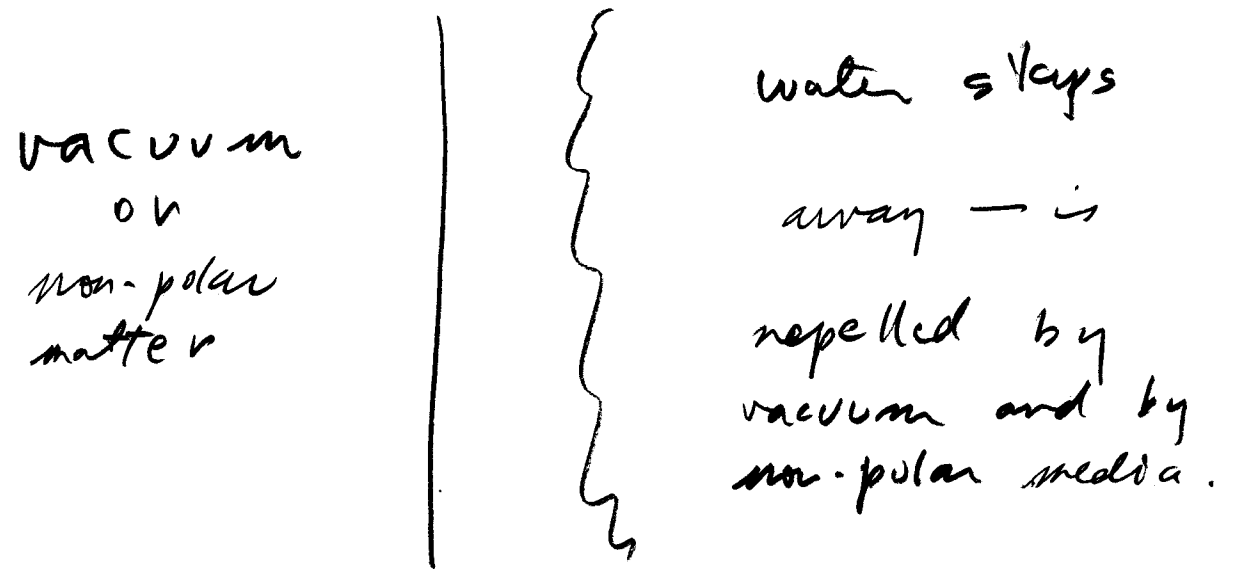 vacuum
or
non-polar
matter
water stays
away — is
repelled by
vacuum and by
non-polar media.